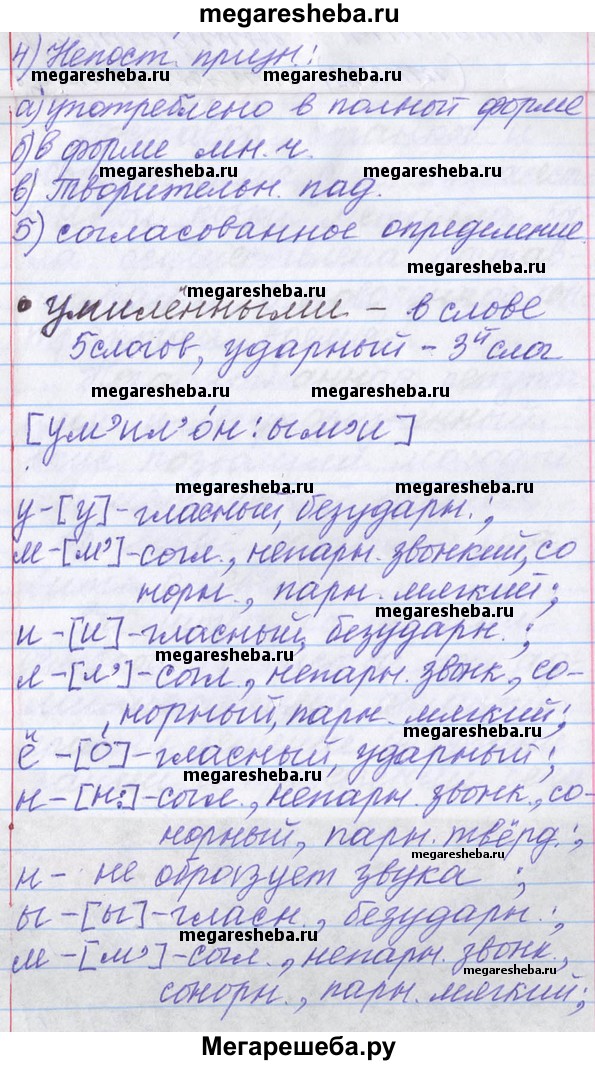 megaresheba.ru
4) Непост. призн.:
megaresheba.ru megaresheba.ru
а) употреблено в полной форме
б) в форме мн. ч.
megaresheba.ru
в) Творительн. пад.
megaresheba.ru
5) согласованное определение.
megaresheba.ru
megaresheba.ru
• умилёнными – в слове
5 слогов, ударный – 3й слог
megaresheba.ru megaresheba.ru
[ум’ил’о́н:ым’и]
megaresheba.ru megaresheba.ru
у – [у] – гласный, безударн.;
м – [м’] – согл., непарн. звонкий, со
норн., парн. мягкий;
megaresheba.ru
и – [и] – гласный, безударн.;
megaresheba.ru
л – [л’] – согл., непарн. звонк., со-
норный, парн. мягкий;
megaresheba.ru
ё – [о́] – гласный, ударный;
megaresheba.ru
н – [н:] – согл., непарн. звонк., со-
норный, парн. твёрд.;
megaresheba.ru
н – не образует звука;
ы – [ы] – гласн., безударн.;
megaresheba.ru
м – [м’] – согл., непарн. звонк.,
megaresheba.ru
сонорн., парн. мягкий;
Мегарешеба.ру